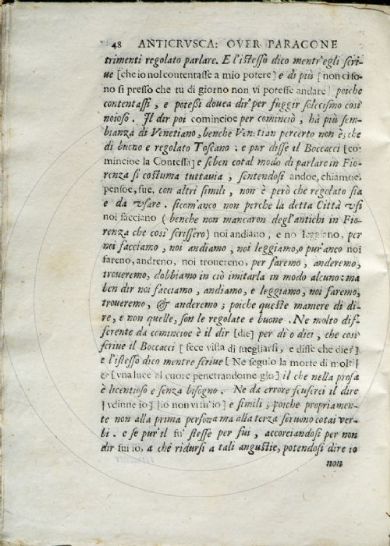 48 ANTICRVSCA: OVER PARACONE
trimenti regolato parlare. E l'istesso dico mentr'egli scri-
ue [che io nol contentasse a mio potere] e di più [non ci so-
no si presso che tu di giorno non vi potesse andare] poiche
contentassi, e potessi douea dir per fuggir solecismo così
noioso. Il dir poi comincioe per cominciò, hà più sem-
bianza di Venetiano, benche Venetian percerto non è, che
di buono e regolato Toscano: e pur disse il Boccacci [co-
mincioe la Contessa] e seben cotal modo di parlare in Fio-
renza si costuma tuttauia, sentendosi andoe, chiamoe,
pensoe, fue, con altri simili, non è però che regolato sia
e da vsare. sicom'anco non perche la detta Città vsi
noi facciano (benche non mancaron degl'antichi in Fio-
renza che così scrissero) noi andiano, e no leggiano, per
noi facciamo, noi andiamo, noi leggiamo, o pur'anco noi
fareno, andreno, noi troueremo, per faremo, anderemo,
troueremo, dobbiamo in ciò imitarla in modo alcuno: ma
ben dir noi facciamo, andiamo, e leggiamo, noi faremo,
troueremo, & anderemo; poiche queste maniere di di-
re, e non quelle, son le regolate e buone. Ne molto dif-
ferente da comincioe è il dir [die] per dì o diei, che così
scriue il Boccacci [fece vista di suegliarsi, e disse che die]
e l'istesso dico mentre scriue [Ne seguìo la morte di molti]
e [vna luce il cuore penetrandomeglo] il che nella prosa
è licentioso e senza bisogno. Ne da errore scuserei il dire
e simili, poiche propriamen-
te non alla prima persona ma alla terza seruono cotai ver-
bi. e se pur'il fu' stesse per fui, accorciandosi per non
dir fui io, a chè ridursi a tali angustie, potendosi dire io
non